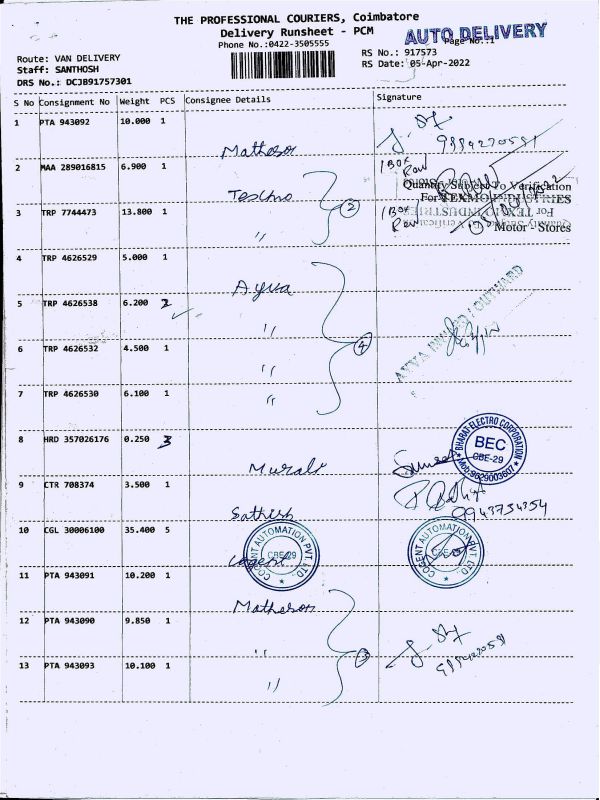 THE PROFESSIONAL COURIERS, Coimbatore
Delivery Runsheet - PCM
AUTO DELIVERY
Phone No.:0422-3505555
Page No.:1
Route: VAN DELIVERY
RS No.: 917573
Staff: SANTHOSH
RS Date: 05-Apr-2022
DRS No.: DCJB91757301
S No Consignment No Weight PCS Consignee Details Signature
1 PTA 943092 10.000 1
Matheson
2 MAA 289016815 6.900 1
1 Box
Techno
Quantity Subject To Verification
For TEXMO INDUSTRIES
3 TRP 7744473 13.800 1
2
1 Box
"
Motor - Stores
4 TRP 4626529 5.000 1
Ayva
AYVA INWARD / OUTWARD
5 TRP 4626538 6.200 2
"
6 TRP 4626532 4.500 1
4
"
7 TRP 4626530 6.100 1
"
8 HRD 357026176 0.250 3
Murali
BHARAT ELECTRO CORPORATION
BEC
CBE-29
Mob:9629003607
9 CTR 708374 3.500 1
Sathish
9943754354
10 CGL 30006100 35.400 5
Cogent
COGENT AUTOMATION PVT. LTD.
CBE-29
COGENT AUTOMATION PVT. LTD.
CBE-29
11 PTA 943091 10.200 1
Matheson
12 PTA 943090 9.850 1
"
3
13 PTA 943093 10.100 1
"